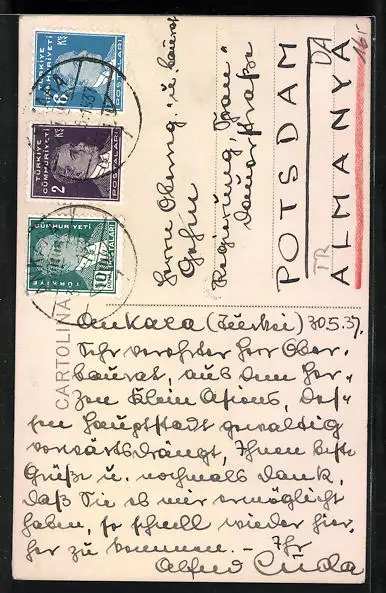 TÜRKİYE
CÜMHURİYETİ
6 Kş
POSTALARI
TÜRKİYE
CÜMHURİYETİ
2 Kş
POSTALARI
TÜRKİYE
CÜMHURİYETİ
POSTALARI
CARTOLINA
Herrn Oberreg.- u. baurat
Regierung,
POTSDAM
ALMANYA
DA
TR
Ankara (Türkei) 30.5.37.
Sehr verehrter Herr Ober-
baurat, aus dem Her-
zen Klein Asiens, des-
sen Hauptstadt gewaltig
vorwärtsdrängt, Ihnen beste
Grüße u. nochmals Dank,
daß Sie es mir ermöglicht
haben, so schnell wieder hier-
her zu kommen. – Ihr
Alfred Cuda